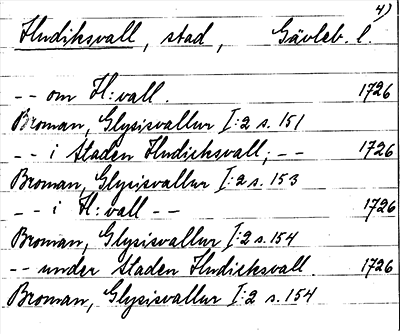 4)
Hudiksvall, stad, Gävleb. l.
-- om H:vall. 1726
Broman, Glysisvallur I:2 s. 151
-- i staden Hudicksvall, -- 1726
Broman, Glysisvallur I:2 s. 153
-- i H:vall -- 1726
Broman, Glysisvallur I:2 s. 154
-- under staden Hudicksvall. 1726
Broman, Glysisvallur I:2 s. 154